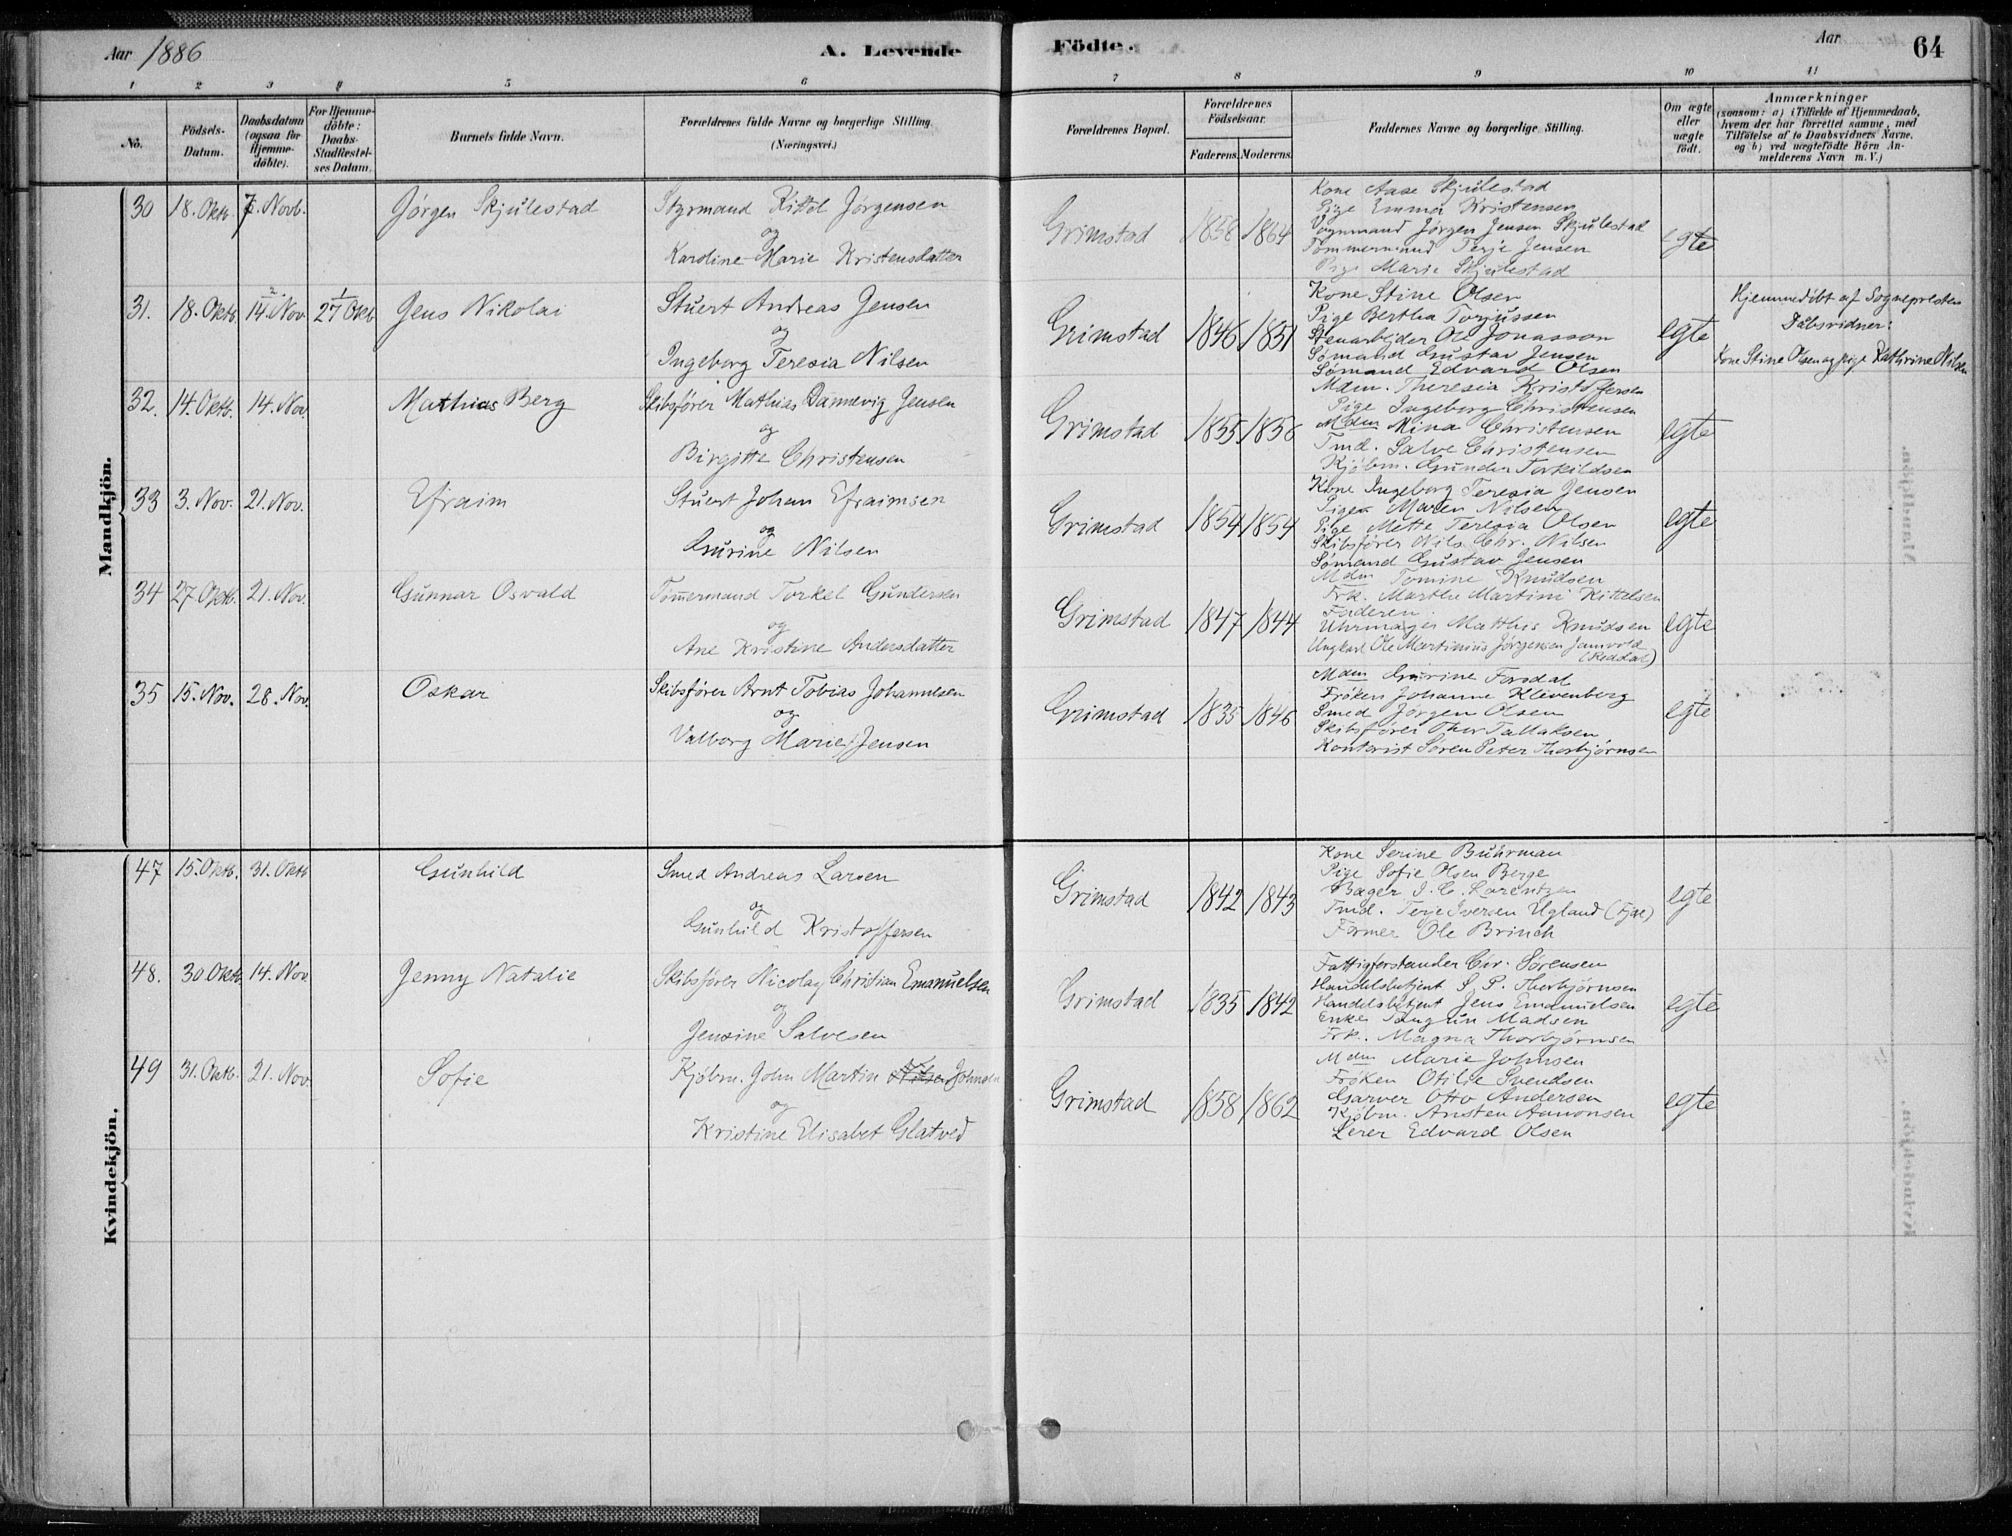 Aar 1886
A. Levende Födte.
Aar
64
1 2 3 4 5 6 7 8 9 10 11
No.
Födsels-Datum.
Daabsdatum (ogsaa for Hjemme-döbte).
For Hjemme-döbte: Daabs-Stadfæstel-ses Datum.
Barnets fulde Navn.
Forældrenes fulde Navne og borgerlige Stilling. (Næringsvei.)
Forældrenes Bopæl.
Forældrenes Födselsaar.
Faderens. Moderens.
Faddernes Navne og borgerlige Stilling.
Om ægte eller uægte födt.
Anmærkninger
(saasom: a) i Tilfælde af Hjemmedaab,
hvem der har forrettet samme, med
Tilföielse af to Daabsvidners Navne,
og b) ved uægtefödte Börn An-
melderens Navn m. V.)
Mandkjön.
30 18. Oktb. 7. Novb. Jørgen Skjulestad
Styrmand Kittel Jørgensen
og
Karoline Marie Kristensdatter
Grimstad 1858 1864
Kone Aase Skjulestad
Pige Emma Kristensen
Vognmand Jørgen Jensen Skjulestad
Tømmermand Terje Jensen
Pige Marie Skjulestad
egte
31. 18. Oktb. 2. 14. Nov 1 27 Oktb Jens Nikolai
Stuert Andreas Jensen
og
Ingeborg Teresia Nilsen
Grimstad 1846 1851
Kone Stine Olsen
Pige Bertha Torjussen
Stenarbejder Ole Jonasson
Sømand Gustav Jensen
Sømand Edvard Olsen
egte
Hjemmedøbt af Sognepresten
Dåbsvidner:
Kone Stine Olsen og pige Kathrine Nilsen
32. 14. Oktb. 14. Nov. Mathias Berg
Skibsfører Mathias Dannevig Jensen
og
Birgitte Christensen
Grimstad 1855 1856
Mdm. Theresia Kristoffersen
Pige Ingeborg Christensen
Mdm Mina Christensen
Tmd. Salve Christensen
Kjøbm. Gunder Torkildsen
egte
33 3. Nov. 21. Nov. Efraim
Stuert Johan Efraimsen
og
Gurine Nilsen
Grimstad 1854 1854
Kone Ingeborg Teresia Jensen
Pige Maren Nilsen
Pige Mette Teresia Olsen
Skibsfører Nils Chr. Nilsen
Sømand Gustav Jensen
egte
34 27 Oktb. 21. Nov. Gunnar Osvald
Tømermand Torkel Gundersen
og
Ane Kristine Andersdatter
Grimstad 1847 1844
Mdm Tomine Knudsen
Frk. Marthe Martini Kittelsen
Faderen
Uhrmager Matthis Knudsen
Ungkarl Ole Martinius Jørgensen
(Reddal)
egte
35 15. Nov. 28. Nov. Oskar
Skibsfører Arnt Tobias Johannesen
og
Valborg Marie Jensen
Grimstad 1835 1846
Mdm Gurine Fosdal
Frøken Johanne Klevenberg
Smed Jørgen Olsen
Skibsfører Thor Tallaksen
Kontorist Søren Peter Thorbjørnsen
egte
Kvindekjön.
47 15. Oktb. 31. Oktb Gunhild
Smed Andreas Larsen
og
Gunhild Kristoffersen
Grimstad 1842 1843
Kone Serine Buhrman
Pige Sofie Olsen Berge
Bager J. C. Lorentzen
Tmd. Terje Iversen Ugland (Fjæe)
Farmer Ole Brinch
egte
48. 30 Oktb. 14. Nov Jenny Natalie
Skibsfører Nicolay Christian Emanuelsen
og
Jensine Salvesen
Grimstad 1835 1842
Fattigforstander Chr. Sørensen
Handelsbetjent S. P. Thorbjørnsen
Handelsbetjent Jens Emanuelsen
Enke Madsen
Frk. Magna Thorbjørnsen
egte
49 31. Oktb. 21. Nov. Sofie
Kjøbm. John Martin Johnsen
og
Kristine Elisabet Glatved
Grimstad 1858 1862
Mdm Marie Johnsen
Frøken Otilie Svendsen
Garver Otto Andersen
Kjøbm. Ansten Aanonsen
Lærer Edvard Olsen
egte